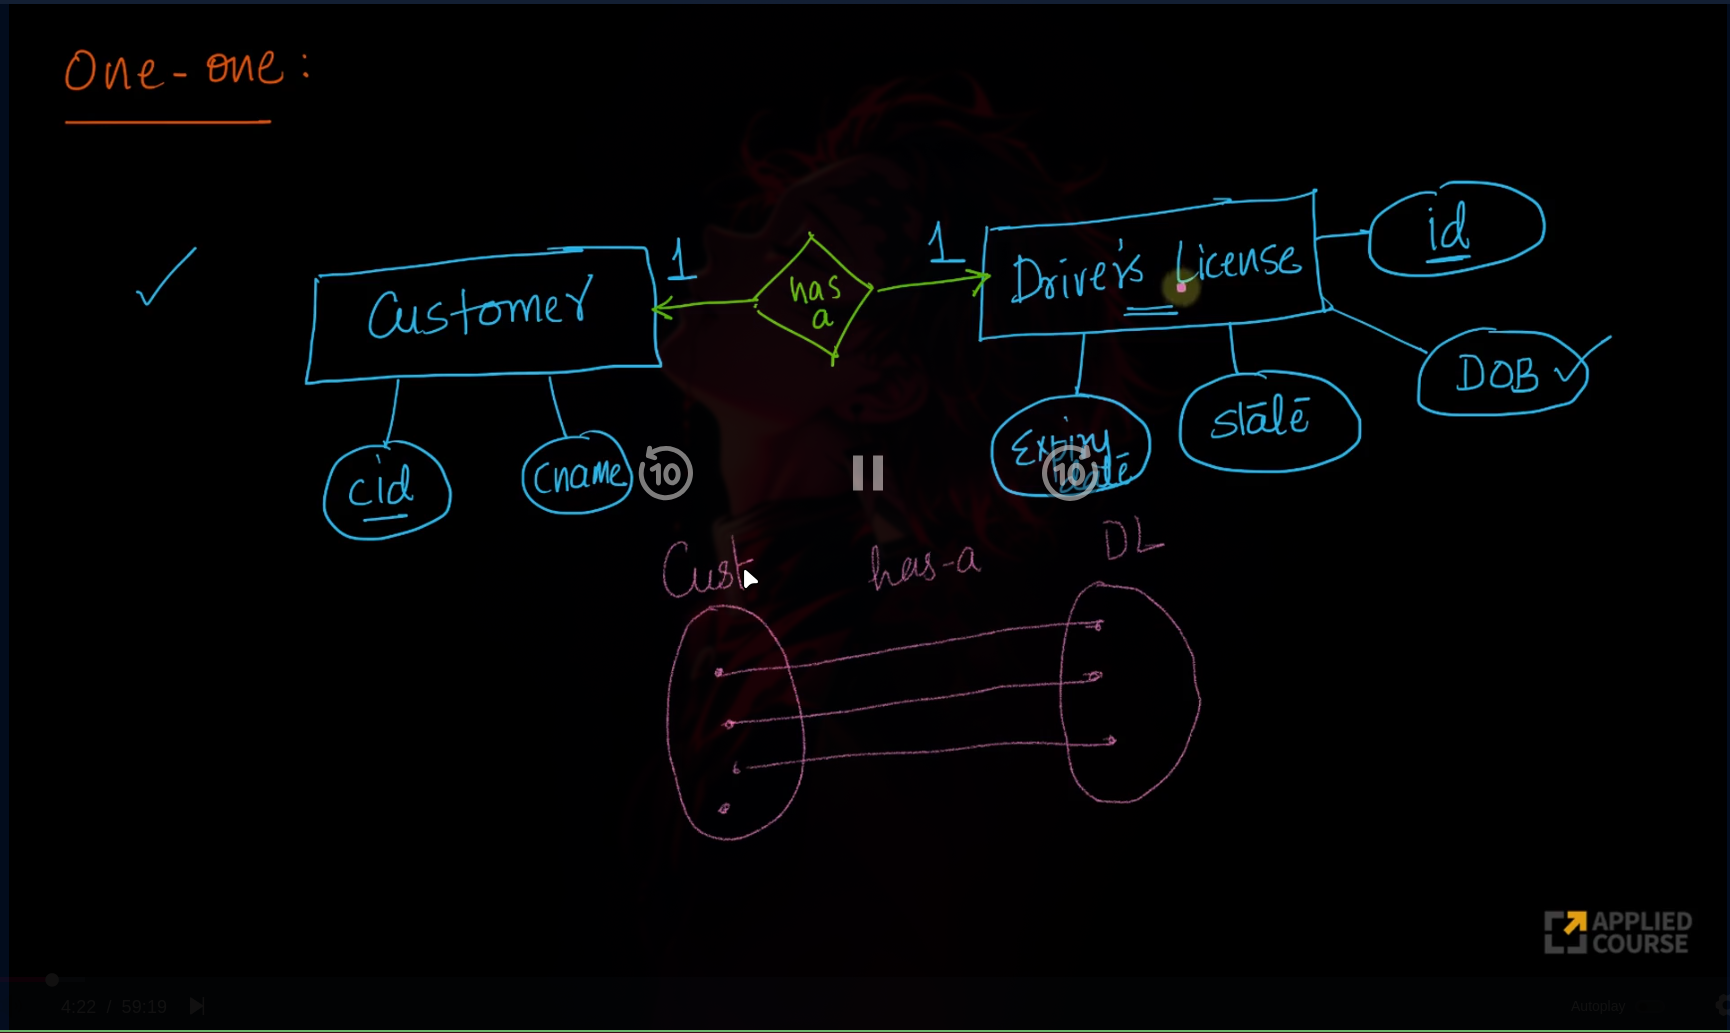 One-one:
Customer
1
has
a
1
Driver's License
id
DOB
cid
cname
Expiry
date
state
10
10
Cust
has-a
DL
APPLIED
COURSE
4:22 / 59:19
Autoplay